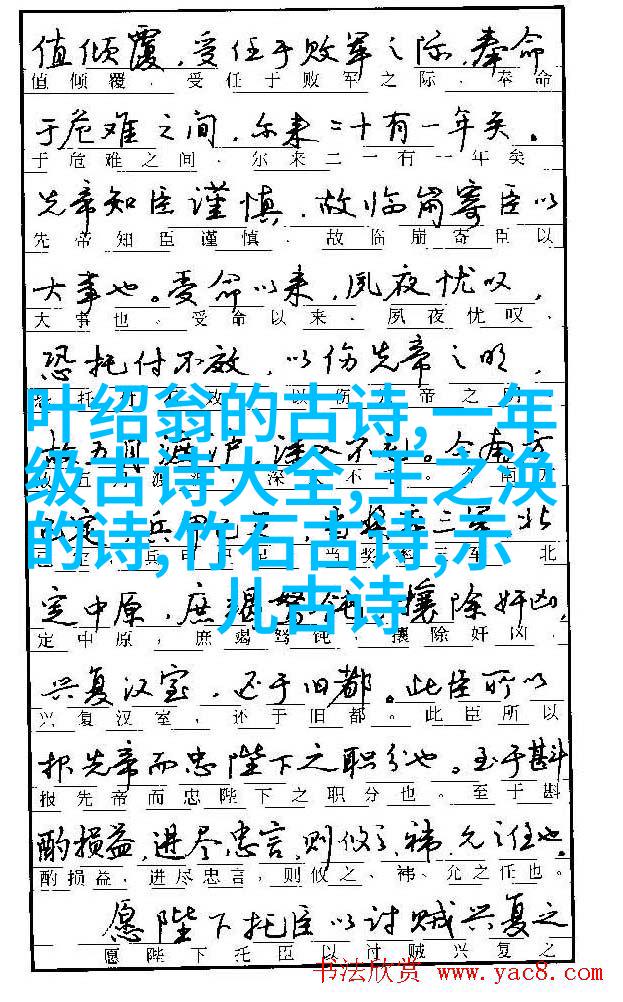 值倾覆,受任于败军之际,奉命
值倾覆.受任于败军之际.奉命
于危难之间,尔来二十有一年矣。
于危难之间.尔来二一有一年矣
先帝知臣谨慎,故临崩寄臣以
先帝知臣谨慎.故临崩寄臣以
大事也。受命以来,夙夜忧叹,
大事也.受命以来.夙夜忧叹.
恐托付不效,以伤先帝之明,
叶绍翁的古诗,一年
级古诗大全,王之涣
的诗,竹石古诗,示
儿古诗
五月渡泸,深入不 。今南方
定,兵甲 三军,北
定中原,庶竭驽钝,攘除奸凶,
定中原,庶竭驽钝,攘除奸凶,
兴复汉室,还于旧都。此臣所以
兴复汉室,还于旧都。此臣所以
报先帝而忠陛下之职分也。至于斟
报先帝而忠陛下之职分也。至于斟
酌损益,进尽忠言,则攸之、祎、允之任也。
酌损益.进尽忠言,则攸之、祎、允之任也。
愿陛下托臣以讨贼兴复之
愿陛下托臣以讨贼兴复之
书法欣赏 www.yac8.com